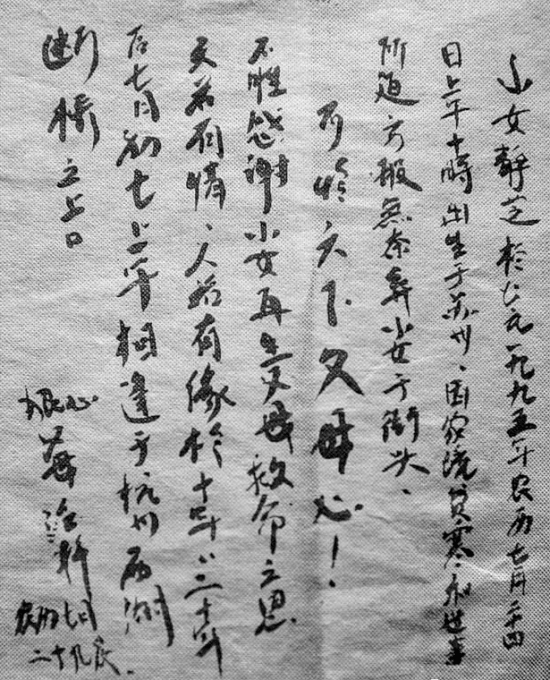 小女静芝於公元一九九五年农历七月二十四
日上午十時出生于苏州、因家境贫寒和世事
所迫万般無奈弃小女于街头、
可怜天下父母心！
不胜感谢小女再生父母救命之恩。
天若有情、人若有缘於十年二十年
后七月初七上午相逢于杭州西湖
断橋之上。
狠心
农历七月
二十九夜.